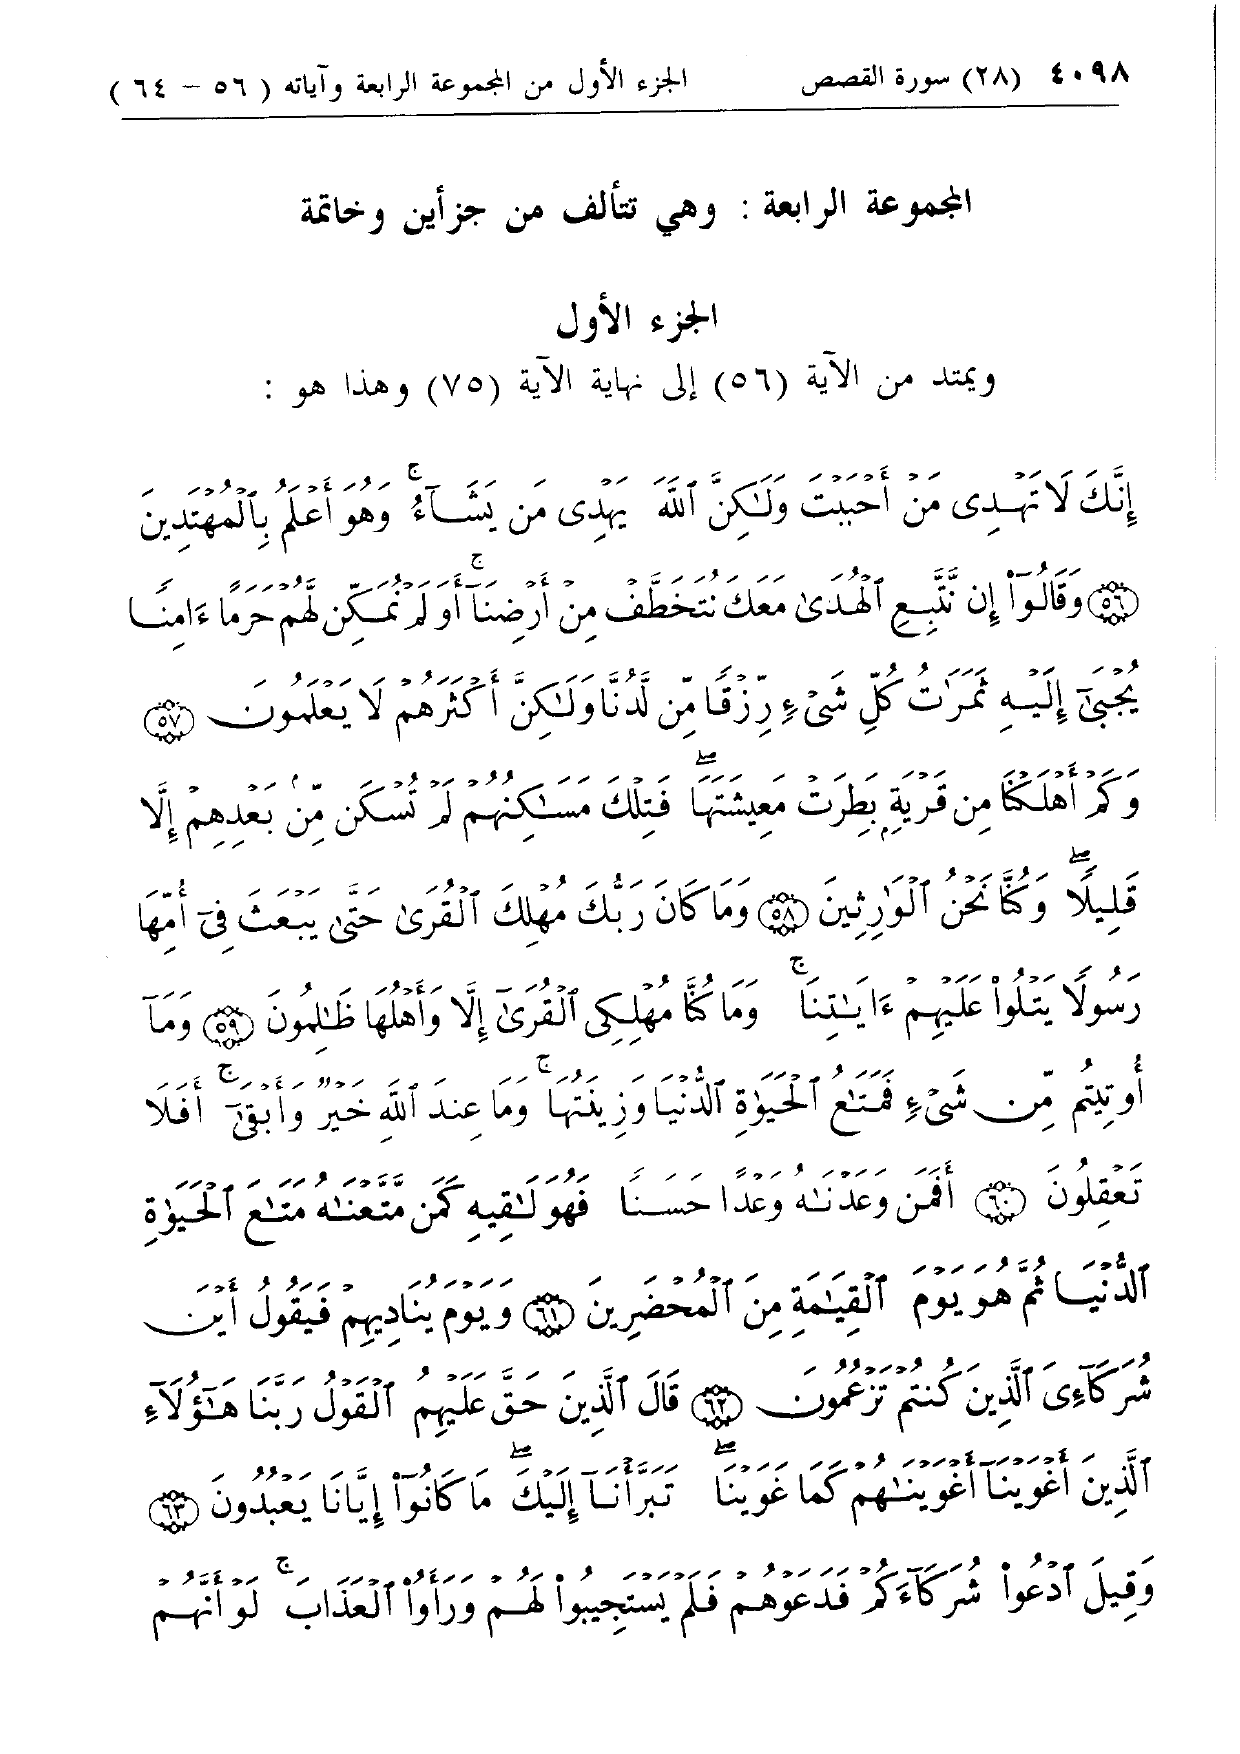 ٤٠٩٨ (٢٨) سورة القصص الجزء الأول من المجموعة الرابعة وآياته ( ٥٦ – ٦٤ )
المجموعة الرابعة : وهي تتألف من جزأين وخاتمة
الجزء الأول
ويمتد من الآية (٥٦) إلى نهاية الآية (٧٥) وهذا هو :
إِنَّكَ لَا تَهْدِى مَنْ أَحْبَبْتَ وَلَٰكِنَّ ٱللَّهَ يَهْدِى مَن يَشَآءُ ۚ وَهُوَ أَعْلَمُ بِٱلْمُهْتَدِينَ
﴿٥٦﴾ وَقَالُوٓا۟ إِن نَّتَّبِعِ ٱلْهُدَىٰ مَعَكَ نُتَخَطَّفْ مِنْ أَرْضِنَآ ۚ أَوَلَمْ نُمَكِّن لَّهُمْ حَرَمًا ءَامِنًا
يُجْبَىٰٓ إِلَيْهِ ثَمَرَٰتُ كُلِّ شَىْءٍ رِّزْقًا مِّن لَّدُنَّا وَلَٰكِنَّ أَكْثَرَهُمْ لَا يَعْلَمُونَ ﴿٥٧﴾
وَكَمْ أَهْلَكْنَا مِن قَرْيَةٍۭ بَطِرَتْ مَعِيشَتَهَا ۖ فَتِلْكَ مَسَٰكِنُهُمْ لَمْ تُسْكَن مِّنۢ بَعْدِهِمْ إِلَّا
قَلِيلًا ۖ وَكُنَّا نَحْنُ ٱلْوَٰرِثِينَ ﴿٥٨﴾ وَمَا كَانَ رَبُّكَ مُهْلِكَ ٱلْقُرَىٰ حَتَّىٰ يَبْعَثَ فِىٓ أُمِّهَا
رَسُولًا يَتْلُوا۟ عَلَيْهِمْ ءَايَٰتِنَا ۚ وَمَا كُنَّا مُهْلِكِى ٱلْقُرَىٰٓ إِلَّا وَأَهْلُهَا ظَٰلِمُونَ ﴿٥٩﴾ وَمَآ
أُوتِيتُم مِّن شَىْءٍ فَمَتَٰعُ ٱلْحَيَوٰةِ ٱلدُّنْيَا وَزِينَتُهَا ۚ وَمَا عِندَ ٱللَّهِ خَيْرٌ وَأَبْقَىٰٓ ۚ أَفَلَا
تَعْقِلُونَ ﴿٦٠﴾ أَفَمَن وَعَدْنَٰهُ وَعْدًا حَسَنًا فَهُوَ لَٰقِيهِ كَمَن مَّتَّعْنَٰهُ مَتَٰعَ ٱلْحَيَوٰةِ
ٱلدُّنْيَا ثُمَّ هُوَ يَوْمَ ٱلْقِيَٰمَةِ مِنَ ٱلْمُحْضَرِينَ ﴿٦١﴾ وَيَوْمَ يُنَادِيهِمْ فَيَقُولُ أَيْنَ
شُرَكَآءِىَ ٱلَّذِينَ كُنتُمْ تَزْعُمُونَ ﴿٦٢﴾ قَالَ ٱلَّذِينَ حَقَّ عَلَيْهِمُ ٱلْقَوْلُ رَبَّنَا هَٰٓؤُلَآءِ
ٱلَّذِينَ أَغْوَيْنَآ أَغْوَيْنَٰهُمْ كَمَا غَوَيْنَا ۖ تَبَرَّأْنَآ إِلَيْكَ ۖ مَا كَانُوٓا۟ إِيَّانَا يَعْبُدُونَ ﴿٦٣﴾
وَقِيلَ ٱدْعُوا۟ شُرَكَآءَكُمْ فَدَعَوْهُمْ فَلَمْ يَسْتَجِيبُوا۟ لَهُمْ وَرَأَوُا۟ ٱلْعَذَابَ ۚ لَوْ أَنَّهُمْ